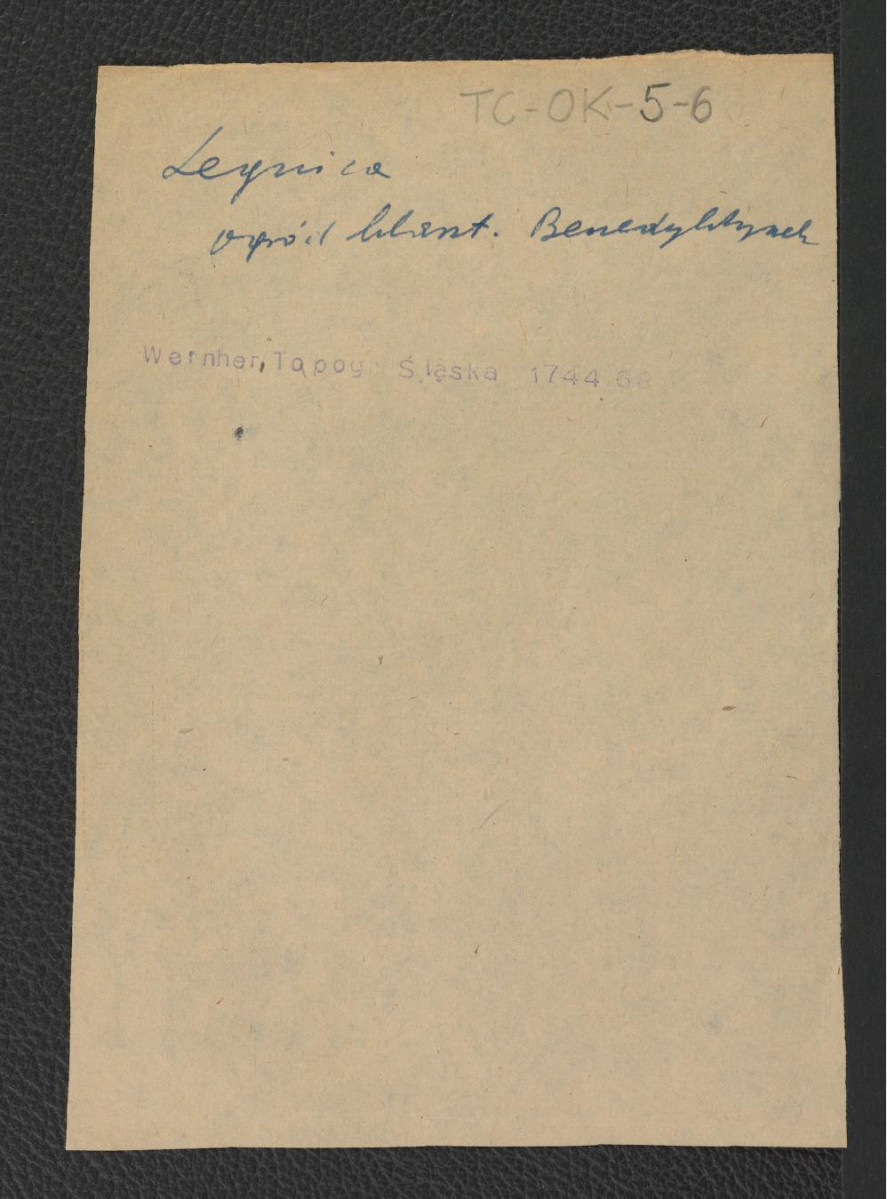 TC-OK-5-6
Legnica
ogród klaszt. Benedyktynek
Wernher, Topogr. Śląska 1744 68